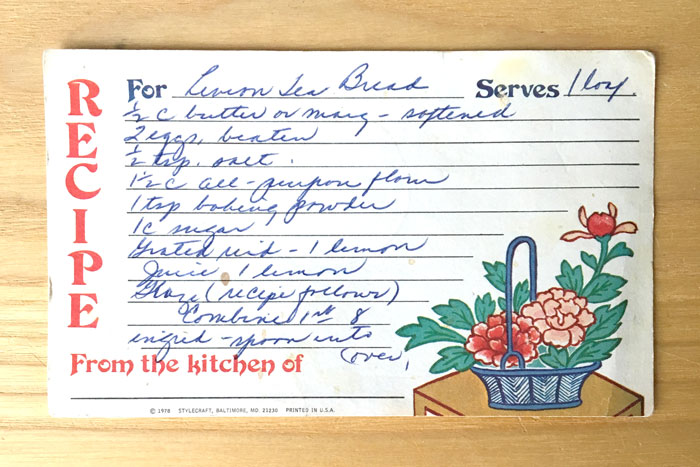 RECIPE
For Lemon Tea Bread Serves 1 loaf
½ c butter or marg - softened
2 eggs, beaten
½ tsp. salt.
1½ c all-purpose flour
1 tsp baking powder
1c sugar
Grated rind - 1 lemon
Juice 1 lemon
Glaze (recipe follows)
Combine 1st 8
ingred - spoon into
(over)
From the kitchen of
© 1978 STYLECRAFT, BALTIMORE, MD. 21230 PRINTED IN U.S.A.